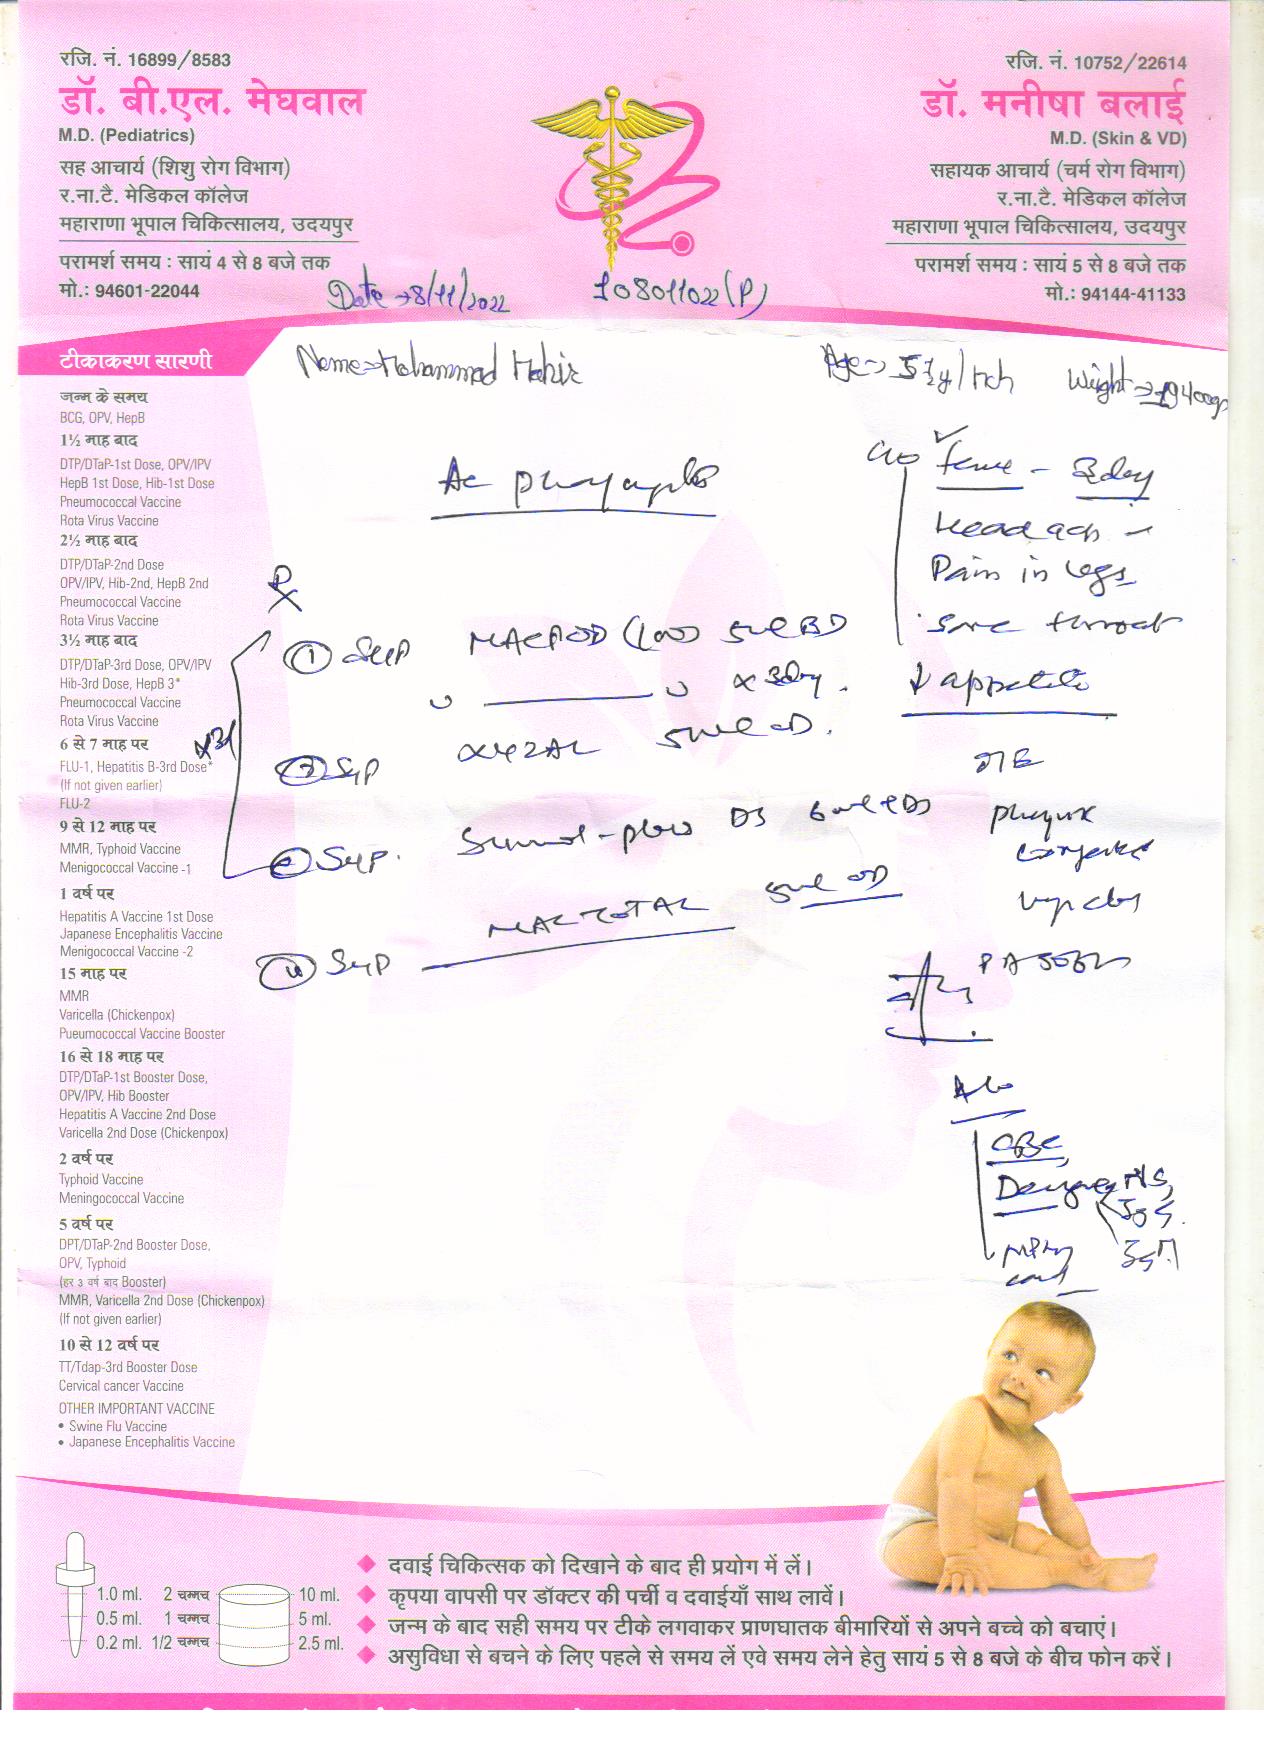 रजि. नं. 16899/8583
डॉ. बी.एल. मेघवाल
M.D. (Pediatrics)
सह आचार्य (शिशु रोग विभाग)
र.ना.टै. मेडिकल कॉलेज
महाराणा भूपाल चिकित्सालय, उदयपुर
परामर्श समय : सायं 4 से 8 बजे तक
मो.: 94601-22044
रजि. नं. 10752/22614
डॉ. मनीषा बलाई
M.D. (Skin & VD)
सहायक आचार्य (चर्म रोग विभाग)
र.ना.टै. मेडिकल कॉलेज
महाराणा भूपाल चिकित्सालय, उदयपुर
परामर्श समय : सायं 5 से 8 बजे तक
मो.: 94144-41133
Date → 8/11/2022
108011022 (P)
Name → Mohammad Mahir
Age → 5½y/mch
Weight →
टीकाकरण सारणी
जन्म के समय
BCG, OPV, HepB
1½ माह बाद
DTP/DTaP-1st Dose, OPV/IPV
HepB 1st Dose, Hib-1st Dose
Pneumococcal Vaccine
Rota Virus Vaccine
2½ माह बाद
DTP/DTaP-2nd Dose
OPV/IPV, Hib-2nd, HepB 2nd
Pneumococcal Vaccine
Rota Virus Vaccine
3½ माह बाद
DTP/DTaP-3rd Dose, OPV/IPV
Hib-3rd Dose, HepB 3*
Pneumococcal Vaccine
Rota Virus Vaccine
6 से 7 माह पर
FLU-1, Hepatitis B-3rd Dose*
(If not given earlier)
FLU-2
9 से 12 माह पर
MMR, Typhoid Vaccine
Menigococcal Vaccine -1
1 वर्ष पर
Hepatitis A Vaccine 1st Dose
Japanese Encephalitis Vaccine
Menigococcal Vaccine -2
15 माह पर
MMR
Varicella (Chickenpox)
Pueumococcal Vaccine Booster
16 से 18 माह पर
DTP/DTaP-1st Booster Dose,
OPV/IPV, Hib Booster
Hepatitis A Vaccine 2nd Dose
Varicella 2nd Dose (Chickenpox)
2 वर्ष पर
Typhoid Vaccine
Meningococcal Vaccine
5 वर्ष पर
DPT/DTaP-2nd Booster Dose,
OPV, Typhoid
(हर 3 वर्ष बाद Booster)
MMR, Varicella 2nd Dose (Chickenpox)
(If not given earlier)
10 से 12 वर्ष पर
TT/Tdap-3rd Booster Dose
Cervical cancer Vaccine
OTHER IMPORTANT VACCINE
• Swine Flu Vaccine
• Japanese Encephalitis Vaccine
Ac
Rx
① Syp MACPOD (100) 5ml BD
x 3day.
Syp 5ml OD.
Syp. DS
Syp MACTOTAL 5ml OD
c/o - 3day
Headach -
Pain in legs
Sore throat
↓ appetite
O/E
Pharynx
congested
CBC,
Dengue NS1
IgG.
IgM
card
1.0 ml.
0.5 ml.
0.2 ml.
2 चम्मच
1 चम्मच
1/2 चम्मच
10 ml.
5 ml.
2.5 ml.
◆ दवाई चिकित्सक को दिखाने के बाद ही प्रयोग में लें।
◆ कृपया वापसी पर डॉक्टर की पर्ची व दवाईयाँ साथ लावें।
◆ जन्म के बाद सही समय पर टीके लगवाकर प्राणघातक बीमारियों से अपने बच्चे को बचाएं।
◆ असुविधा से बचने के लिए पहले से समय लें एवे समय लेने हेतु सायं 5 से 8 बजे के बीच फोन करें।